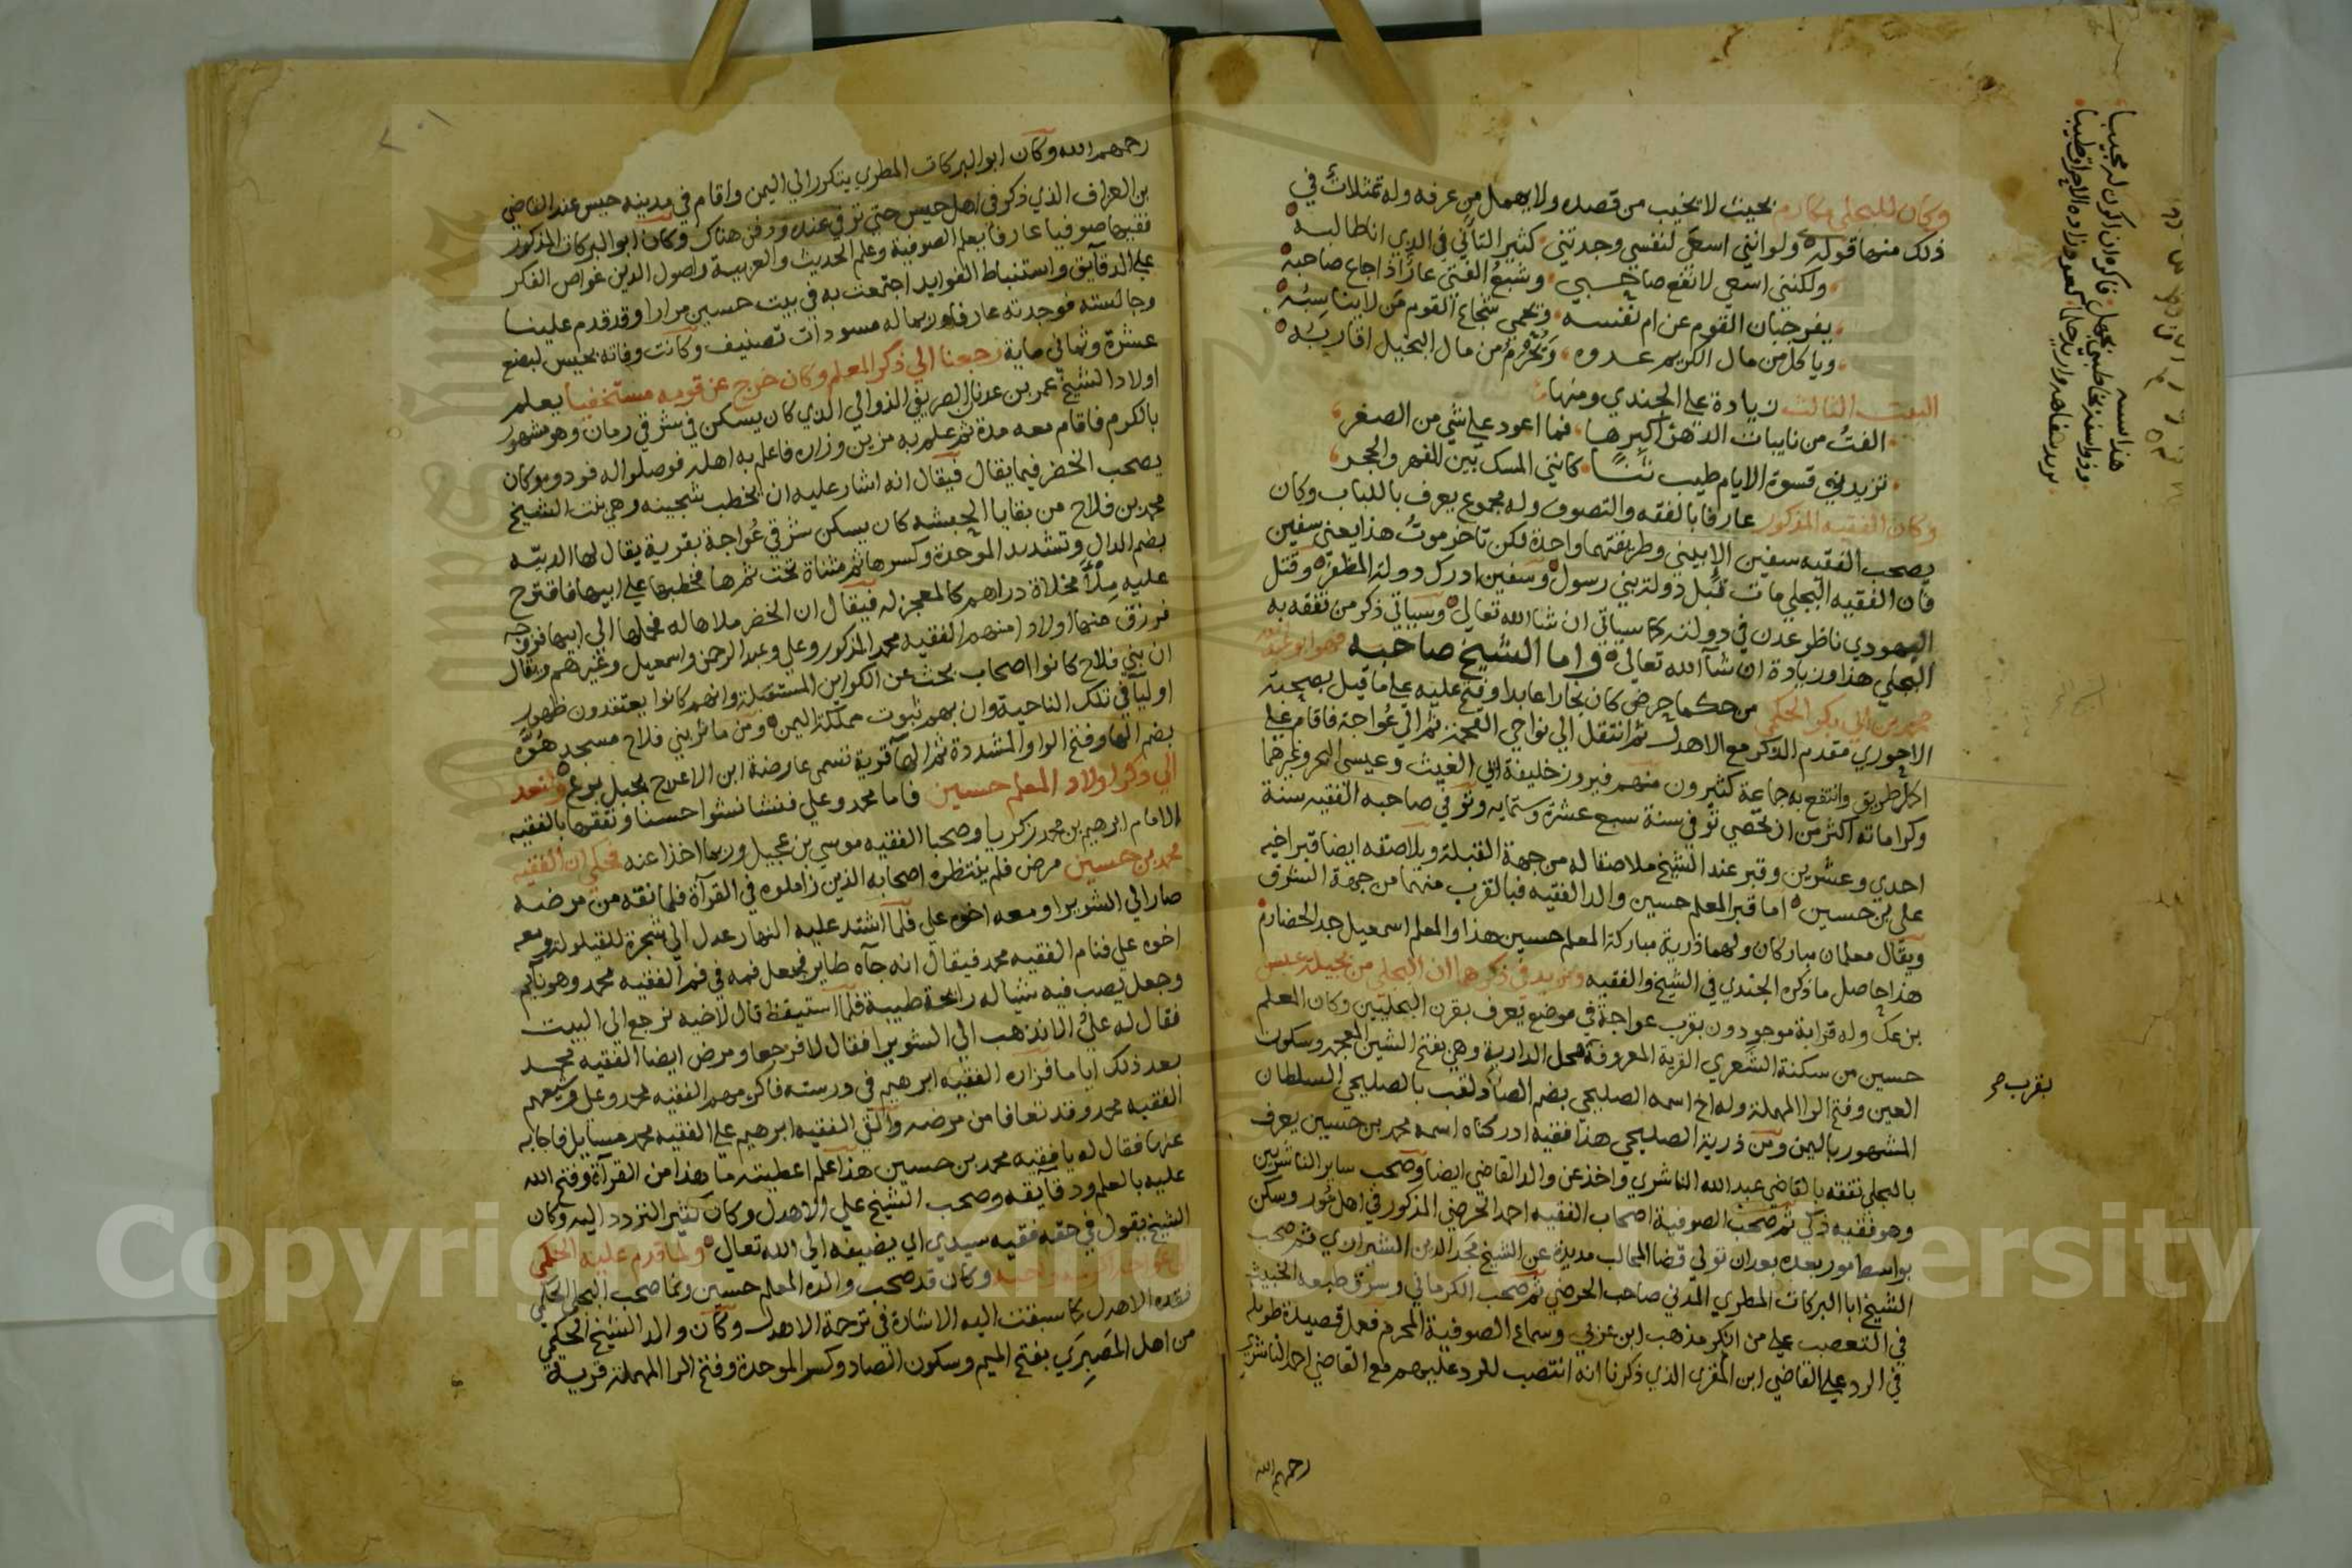 وكان للبجلي مكارم بحيث لا يخيب من قصده ولا يهمل من عرفه وله تمثلات في
ذلك منها قوله ولو انني اسعى لنفسي وجدتني كثير التاني في الذي انا طالبه
ولكنني اسعى لانفع صاحبي وشبع الفتى عار اذا جاع صاحبه
يفر جبان القوم عن ام نفسه ويحمى شجاع القوم من لا يناسبه
وياكل من مال الكريم عدوه ويحرم من مال البخيل اقاربه
البيت الثالث زيادة على الجندي ومنها
الفت من نايبات الدهر اكبرها فما اعود على شي من الصغر
تزيدني قسوة الايام طيب ثنا كانني المسك بين الفهر والحجر
وكان الفقيه المذكور عارفا بالفقه والتصوف وله مجموع يعرف باللباب وكان
يصحب الفقيه سفين الابيني وطريقتهما واحدة لكن تاخر موت هذا يعني سفين
فان الفقيه البجلي مات قبل دولة بني رسول وسفين ادرك دولة المظفر وقتل
اليهودي ناظر عدن في دولته كما سياتي ان شا الله تعالى وسياتي ذكر من تفقه به
البجلي هذا وزيادة ان شآ الله تعالى واما الشيخ صاحبه فهو ابو عبد الله
محمد بن ابي بكر الحكمي من حكما حرض كان نجارا عابدا وفتح عليه على ما قيل بصحبة
الاحوري مقدم الذكر مع الاهدل ثم انتقل الى نواحي القحمة ثم الى عواجة فاقام على
اكمل طريق وانتفع به جماعة كثيرون منهم فيروز خليفة ابي الغيث وعيسى الهر وغيرهما
وكراماته اكثر من ان تحصى توفي سنة سبع عشرة وستمايه وتوفي صاحبه الفقيه سنة
احدي وعشرين وقبر عند الشيخ ملاصقا له من جهة القبلة ويلاصقه ايضا قبر اخيه
علي بن حسين اما قبر المعلم حسين والد الفقيه فبالقرب منهما من جهة الشرق
ويقال معلمان مباركان ولهما ذرية مباركة المعلم حسين هذا والمعلم اسمعيل جد الحضارم
هذا حاصل ما ذكره الجندي في الشيخ والفقيه ونزيد في ذكرهما ان البجلي من بجيلة عبس
بن عك وله قرابة موجودون بقرب عواجة في موضع يعرف بقرن البجليين وكان المعلم
حسين من سكنة الشعري القرية المعروفة محل الدارية وهي بفتح الشين المعجمه وسكون
العين وفتح الرا المهملة وله اخ اسمه الصليحي بضم الصاد لقب بالصليحي السلطان
المشهور باليمن ومن ذرية الصليحي هذا فقيه ادركناه اسمه محمد بن حسين يعرف
بالبجلي تفقه بالقاضي عبد الله الناشري واخذ عن والد القاضي ايضا وصحب ساير الناشريين
وهو فقيه ذكي ثم صحب الصوفية اصحاب الفقيه احمد الحرضي المذكور في اهل مور وسكن
بواسط مور بعده بعد ان تولى قضا المحالب مديدة عن الشيخ مجد الدين الشيرازي ثم صحب
الشيخ ابا البركات المطري المدني صاحب الحرضي ثم صحب الكرماني وسرق طبعه الخبيث
في التعصب على من انكر مذهب ابن عربي وسماع الصوفية المحرم فعمل قصيدة طويلة
في الرد على القاضي ابن المقري الذي ذكرنا انه انتصب للرد عليهم مع القاضي احمد الناشري
رحمهم الله
هذا اسسه
يخاطبني بجهل فاكره ان اكون له مجيبا
كعود زاده الاحراق طيبا
بقرب صح
رحمهم الله وكان ابو البركات المطري يتكرر الى اليمن واقام في مدينه حيس عند القاضي
بن العراف الذي ذكر في اهل حيس حتى توفي عنده ودفن هناك وكان ابو البركات المذكور
فقيها صوفيا عارفا بعلم الصوفية وعلم الحديث والعربية واصول الدين غواص الفكر
على الدقآيق واستنباط الفوايد اجتمعت به في بيت حسين مرارا وقد قدم علينا
وجالسته فوجدته عارفا وربما له مسودات تصنيف وكانت وفاته بحيس لبضع
عشرة وثماني ماية رجعنا الى ذكر المعلم وكان خرج عن قومه مستخفيا يعلم
اولاد الشيخ عمر بن عدنان الصريفي الذوالي الذي كان يسكن في شرقي رمان وهو مشهور
بالكرم فاقام معه مدة ثم علم به مزين وزاره فاعلم به اهله فوصلوا له فودوه وكان
يصحب الخضر فيما يقال فيقال انه اشار عليه ان يخطب شجينه وهي بنت الشيخ
محمد بن فلاح من بقايا الحبشه كان يسكن شرقي عواجة بقرية يقال لها الدبيه
بضم الدال وتشديد الموحدة وكسرها ثم مثناة تحت ثم ها فخطبها على ابيها فاقترح
عليه ملأ مخلاة دراهم كالمعجز له فيقال ان الخضر ملاها له فحملها الى ابيها فزوجه
فرزق منها اولادا منهم الفقيه محمد المذكور وعلي وعبد الرحمن واسمعيل وغيرهم ويقال
ان بني فلاح كانوا اصحاب بحث عن الكواين المستقبلة وانهم كانوا يعتقدون ظهور
اوليآ في تلك الناحية وان بهم ثبوت مملكة اليمن ومن ماثر بني فلاح مسجد هوه
بضم الها وفتح الواو المشددة ثم الهآ قرية تسمى عارضة ابن الاعلاج بجبل برع ولنعد
الى ذكر اولاد المعلم حسين فاما محمد وعلي فنشا نشوا حسنا وتفقها بالفقيه
الامام ابرهيم بن محمد زكريا وصحبا الفقيه موسى بن عجيل وربما اخذا عنه فحكي ان الفقيه
محمد بن حسين مرض فلم ينتظره اصحابه الذين زاملوه في القرآة فلما نقه من مرضه
صار الى الشويرا ومعه اخوه علي فلما اشتد عليه النهار عدل الى شجرة للقيلوله ومعه
اخوه علي فنام الفقيه محمد فيقال انه جآه طاير فجعل فمه في فم الفقيه محمد وهو نآيم
وجعل يصب فيه شيا له رائحة طيبة فلما استيقظ قال لاخيه نرجع الى البيت
فقال له علي الا نذهب الى الشويرا فقال لا فرجعا ومرض ايضا الفقيه محمد
بعد ذلك اياما فزاره الفقيه ابرهيم في درسته فاكرمهم الفقيه محمد وعلي وشيعهم
الفقيه محمد وقد تعافا من مرضه والقى الفقيه ابرهيم على الفقيه محمد مسايل فاجابه
عنها فقال له يا فقيه محمد بن حسين هذا علم اعطيته ما هذا من القرآة وفتح الله
عليه بالعلم ودقآيقه وصحب الشيخ علي الاهدل وكان كثير التردد اليه وكان
الشيخ يقول في حقه فقيه سيدي اي يضيفه الى الله تعالى ولما قدم عليه الحكمي
وكان قد صحب والده المعلم حسين وانما صحب البجلي الحكمي
فقده الاهدل كما سبقت اليه الاشارة في ترجمة الاهدل وكان والد الشيخ الحكمي
من اهل المصبرى بفتح الميم وسكون الصاد وكسر الموحدة وفتح الرا المهملة قرية
Copyright © King Saud University